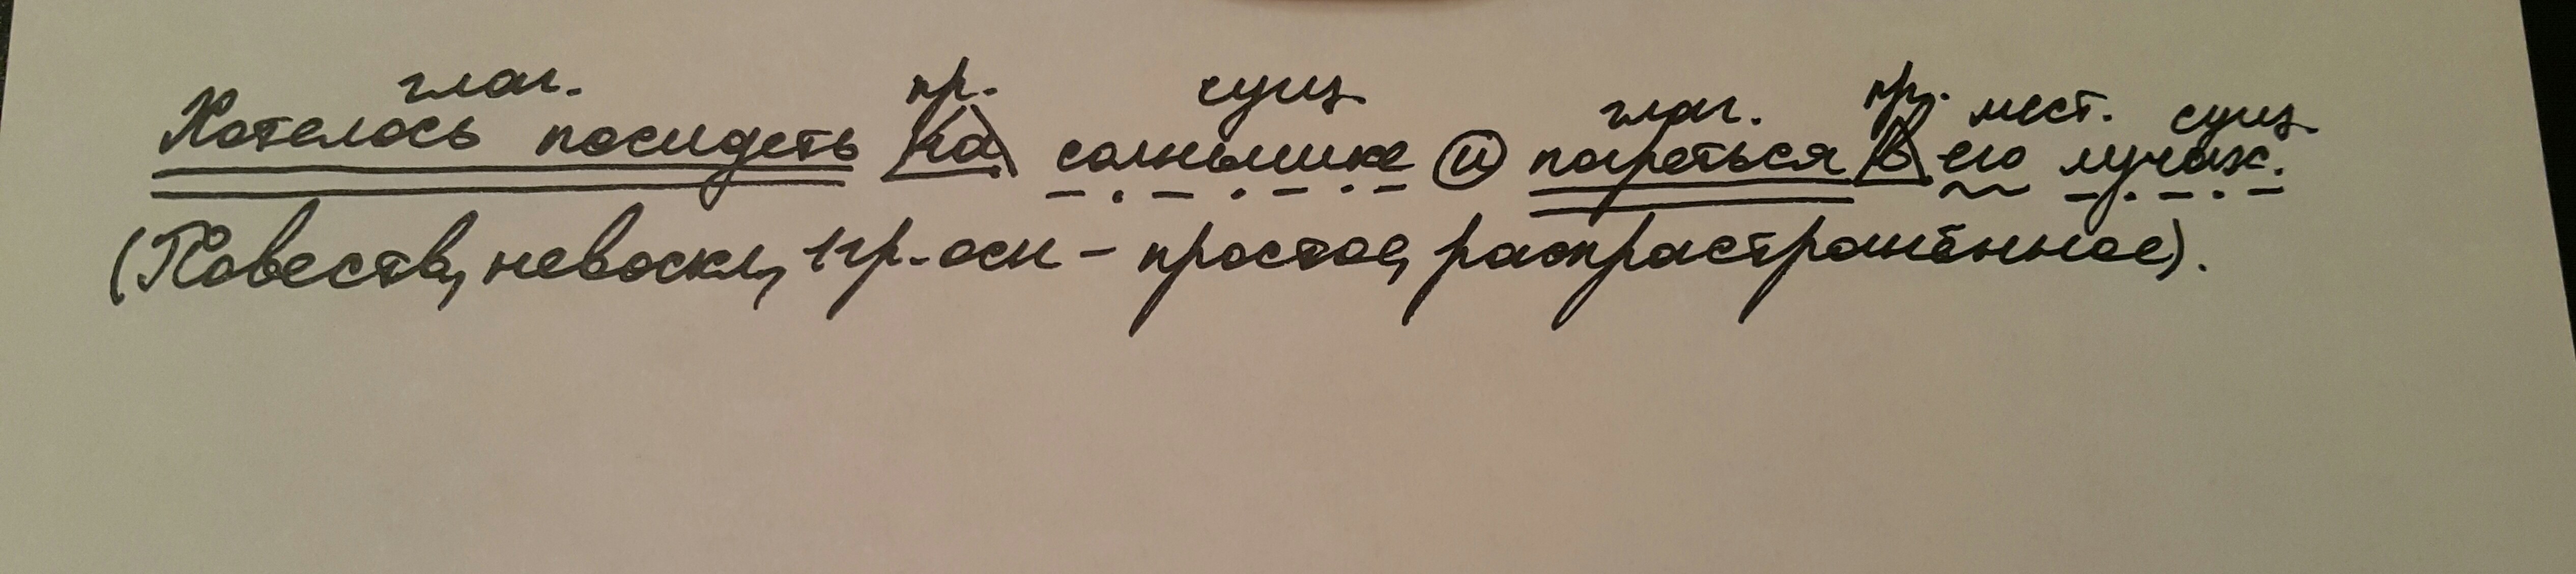 глаг. пр. сущ. глаг. пр. мест. сущ.
Хотелось посидеть на солнышке и погреться в его лучах.
(Повеств, невоскл, 1 гр. осн - простое, распрастранённое).